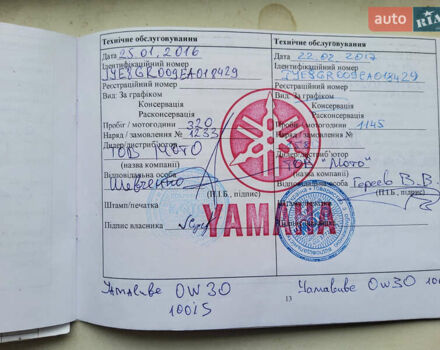 auto RIA
Технічне обслуговування
Дата 25.01.2016
Ідентифікаційний номер
JYE8GR009EA018429
Реєстраційний номер
Вид: За графіком
Консервація
Расконсервація
Пробіг / мотогодини 320
Наряд / замовлення № 1233
Дилер/дистриб'ютор
ТОВ МОТО
(назва компанії)
Відповідальна особа
Шевченко
(П.І.Б., підпис)
Штамп/печатка
Підпис власника
Технічне обслуговування
Дата 22.02.2017
Ідентифікаційний номер
JYE8GR009EA018429
Реєстраційний номер
Вид: За графіком
Консервація
Расконсервація
Пробіг / мотогодини 1145
Наряд / замовлення №
Дилер/дистриб'ютор
ТОВ "Мото"
(назва компанії)
Відповідальна особа
Гереев В.В.
(П.І.Б., підпис)
YAMAHA
13
Yamalube 0W30
100is
Yamalube 0W30